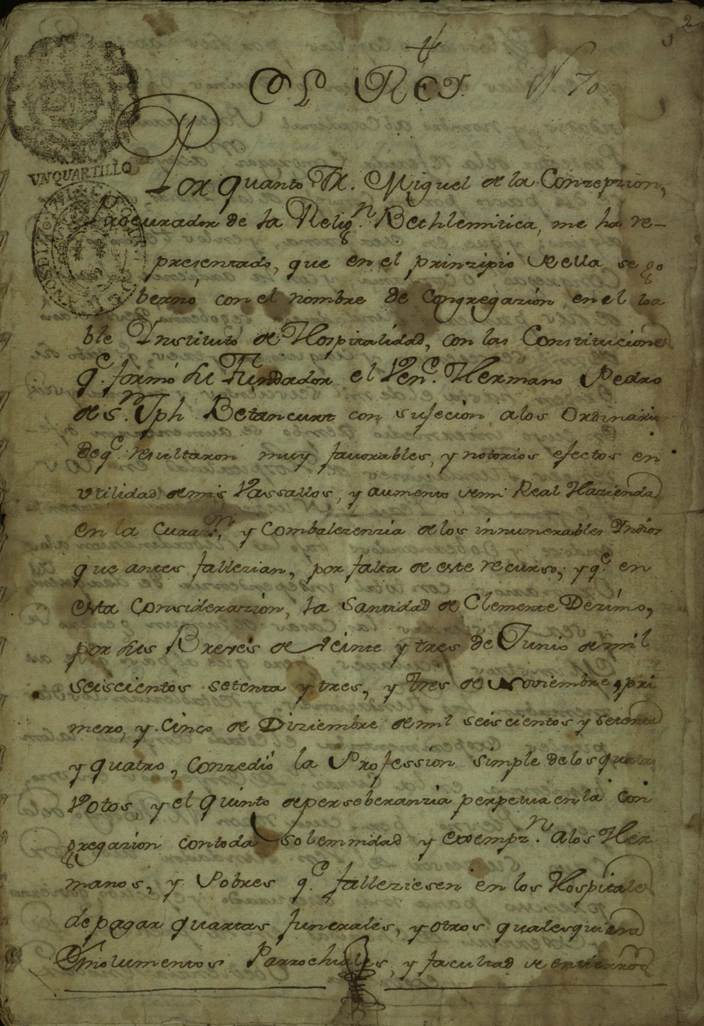 2
EL REY.
Nº 70
VN QUARTILLO
Por quanto Fr. Miguel de la Conzepcion,
Procurador de la Relign. Bethlemitica, me ha re-
presentado, que en el principio de ella se go
bernó con el nombre de Congregazion en el loa
ble Instituto de Hospitalidad, con las Constitucione
qe. formó su Fundador el Vene. Hermano Pedro
de Sn. Jph Betancurt con sujecion a los Ordinario
de qe. resultaron muy favorables, y notorios efectos en
utilidad de mis Vassallos, y aumento de mi Real Hazienda
en la Curazn. y Combalezenzia de los innumerables Indios
que antes fallezian, por falta de este recurso, y qe. en
esta Considerazion, la Santidad de Clemente Dezimo,
por sus Breves de veinte y tres de Junio de mil
seiscientos setenta y tres, y tres de Noviembre, pri
mero, y Cinco de Diziembre de mil seiscientos y setenta
y quatro, Conzedió la Profession simple de los quatro
Votos, y el quinto de perseberanzia perpetua en la con
gregazion con toda solemnidad y exempzn. a los Her
manos, y Pobres qe. falleziesen en los Hospitale
de pagar quartas funerales, y otros qualesquiera
Emolumentos Parrochiales, y facultad de enterrar